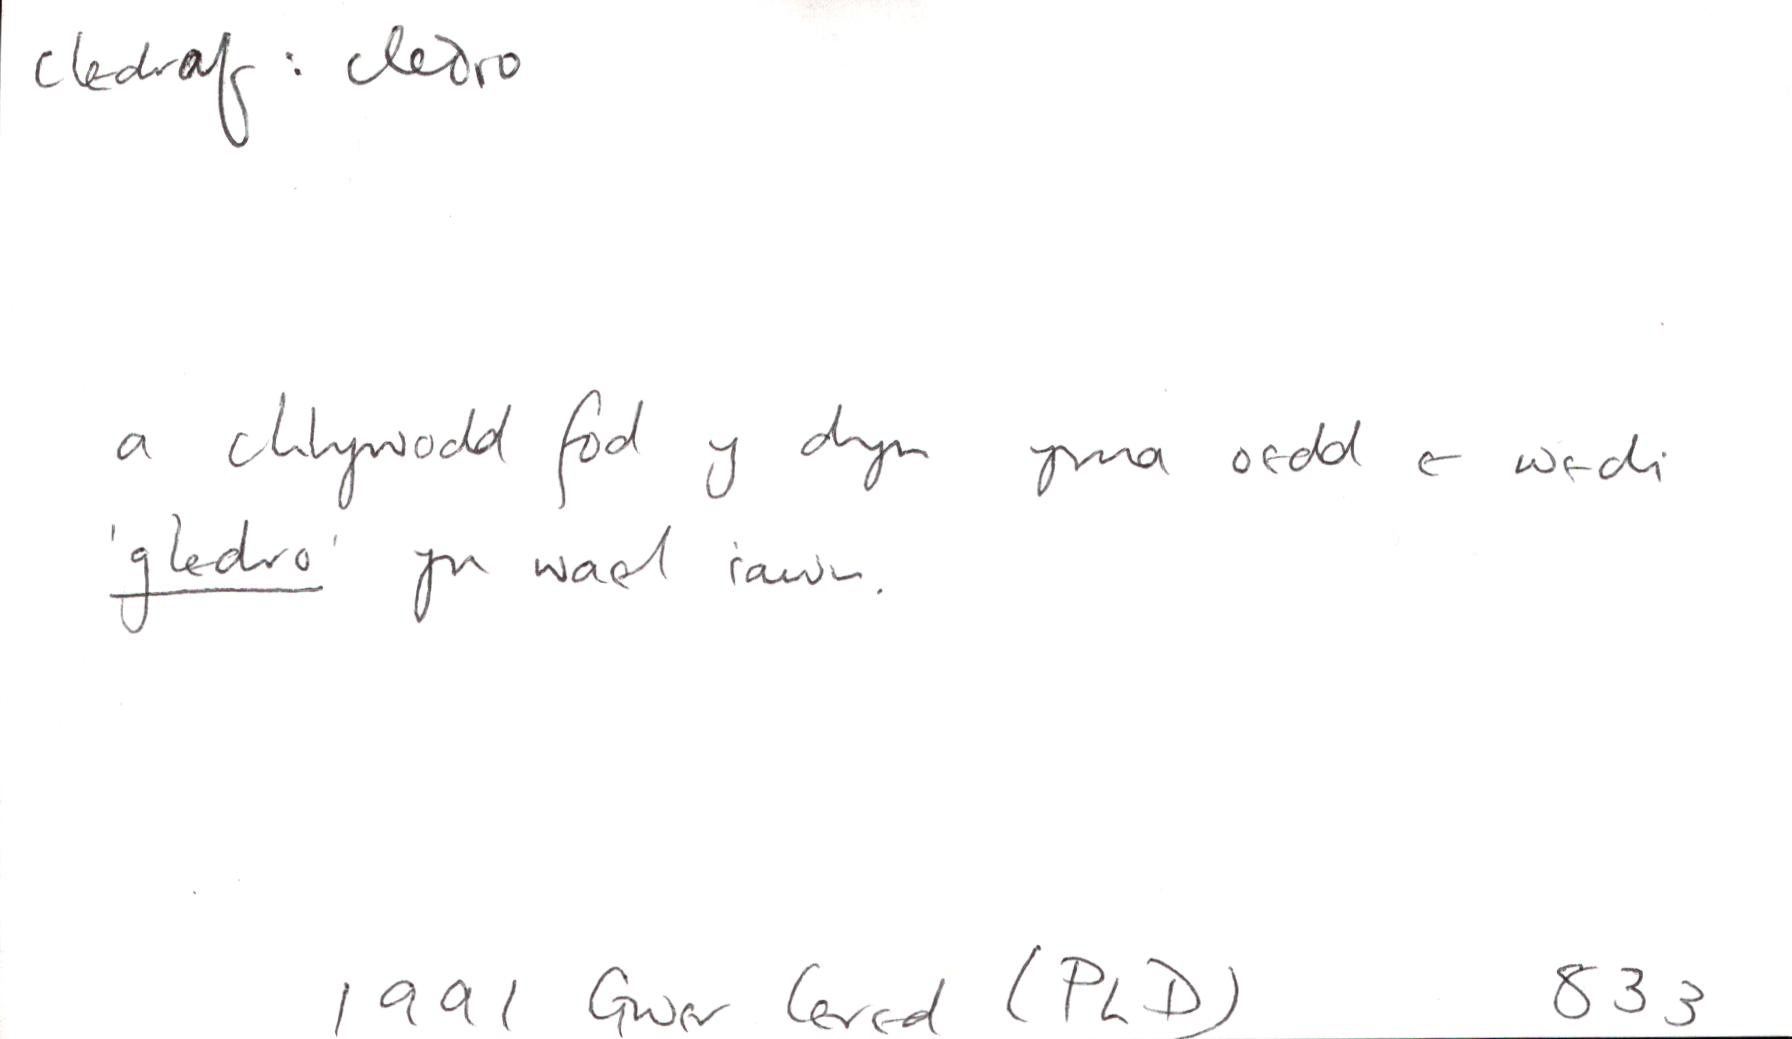 cledraf: cledro
a chlywodd fod y dyn yma oedd e wedi
'gledro' yn wael iawn.
1991 Gwer Cered (PhD) 833